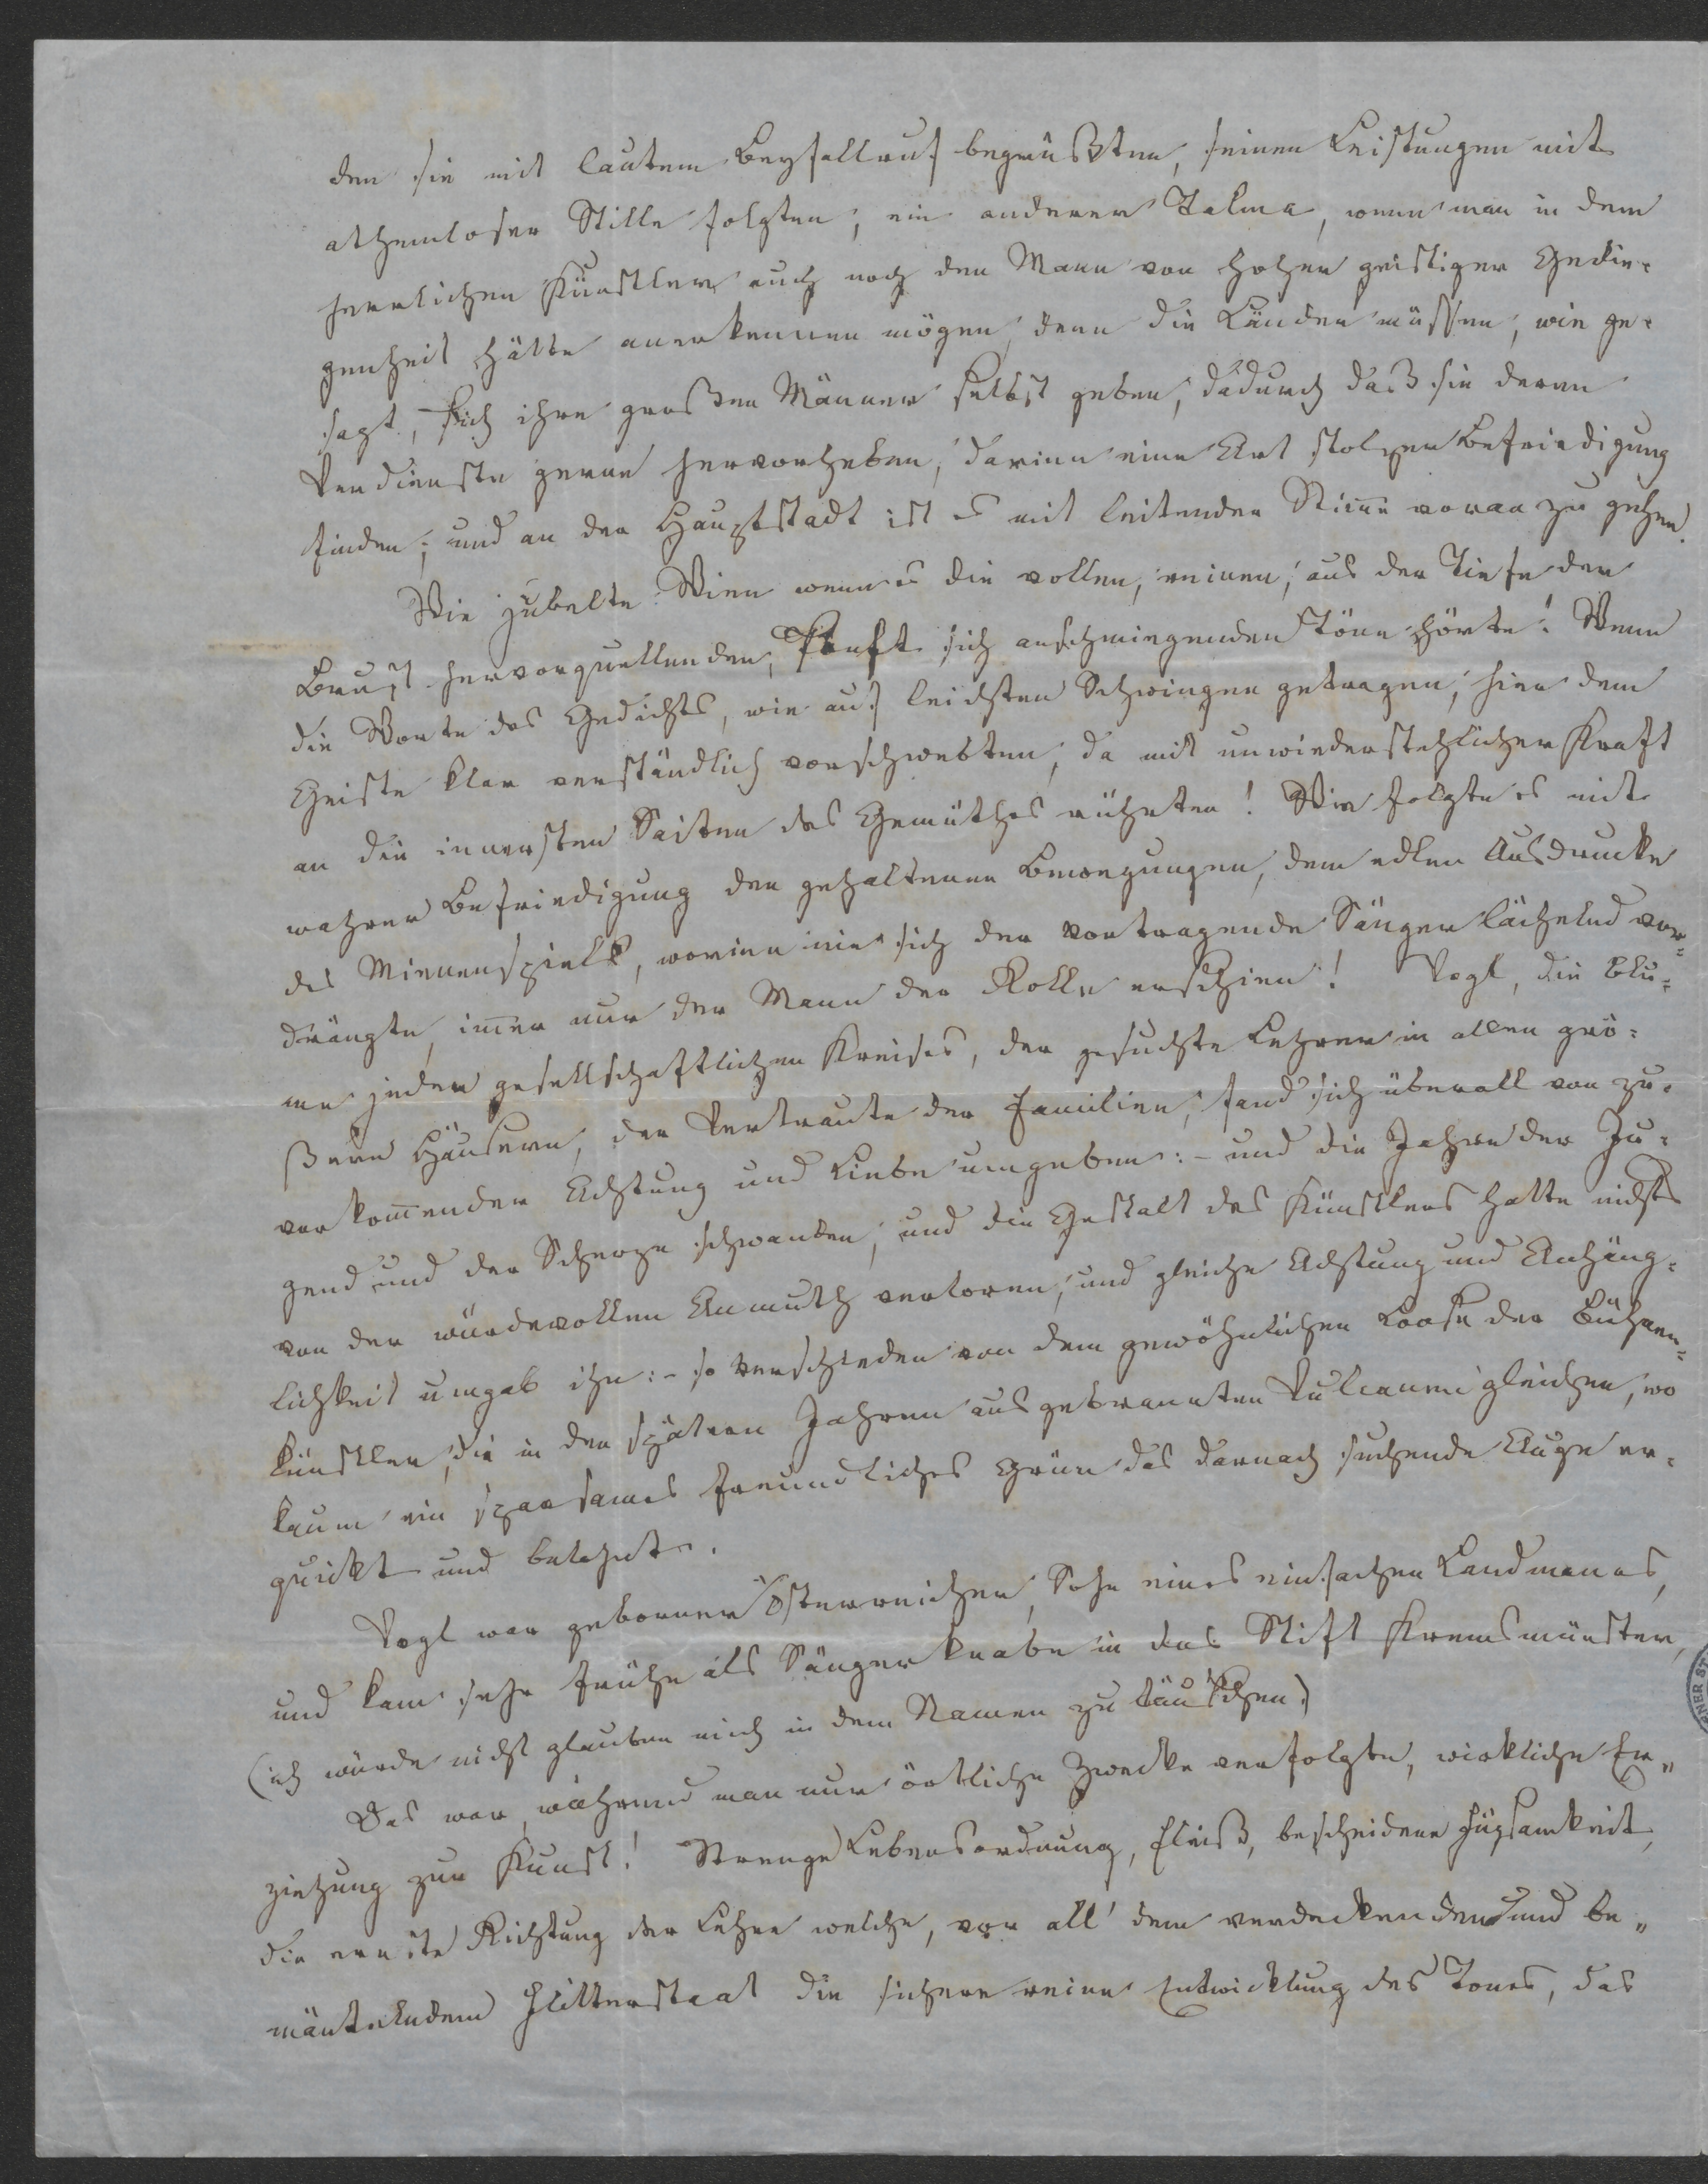 den sie mit lautem Beyfallruf begrüßten, seinen Leistungen mit
athemloser Stille folgten; ein anderer Talma, wenn man in dem
herrlichen Künstler auch noch den Mann von hoher geistiger Gedie-
genheit hätte anerkennen mögen; denn die Länder müssen, wie ge-
sagt, sich ihre großen Männer selbst geben, dadurch daß sie deren
Verdienste gerne hervorheben, darinn eine Art stolzer Befriedigung
finden; und an der Hauptstadt ist es mit leitender Stim̅e voran zu gehen.
Wie jubelte Wien wenn es die vollen, reinen, aus der Tiefe der
Brust hervorquellenden, sanft sich anschmiegenden Töne hörte! Wenn
die Worte des Gedichts, wie auf leichten Schwingen getragen, hier dem
Geiste klar verständlich vorschwebten, da mit unwiederstehlicher Kraft
an die innersten Saiten des Gemüthes rührten! Wie folgte es mit
wahrer Befriedigung den gehaltenen Bewegungen, dem edlen Ausdrucke
des Mienenspiels, worinn nie sich der vortragende Sänger lächelnd vor-
drängte, im̅er nur der Mann der Rolle erschien! Vogl, die Blu-
me jeden gesellschaftlichen Kreises, der gesuchte Lehrer in allen grö-
ßern Häusern, der Vertraute der Familien, fand sich überall von zu-
vorkom̅ender Achtung und Liebe umgeben: - und die Jahre der Ju-
gend und der Scherze schwanden, und die Gestalt des Künstlers hatte nichts
von der würdevollen Anmuth verloren, und gleiche Achtung und Anhäng-
lichkeit umgab ihn: - so verschieden von dem gewöhnlichen Loose der Bühnen-
künstler, die in den spätern Jahren ausgebrannten Vulcanen gleichen, wo
kaum ein sparsames freundliches Grün das darnach suchende Auge er-
quickt und belohnt.
Vogl war geborner Österreicher, Sohn eines einfachen Landmanns,
und kam sehr frühe als Sängerknabe in das Stift Kremsmünster,
(ich würde nicht glauben mich in dem Namen zu täuschen.)
Das war, während man nur örtliche Zwecke verfolgte, wirkliche Er-
ziehung zur Kunst! Strenge Lebensordnung, Fleiß, bescheidene Fügsamkeit,
die ernste Richtung der Lehre welche, vor all' dem verdeckenden und be-
mäntelnden Flitterstaat die sichere reine Entwicklung des Tones, das